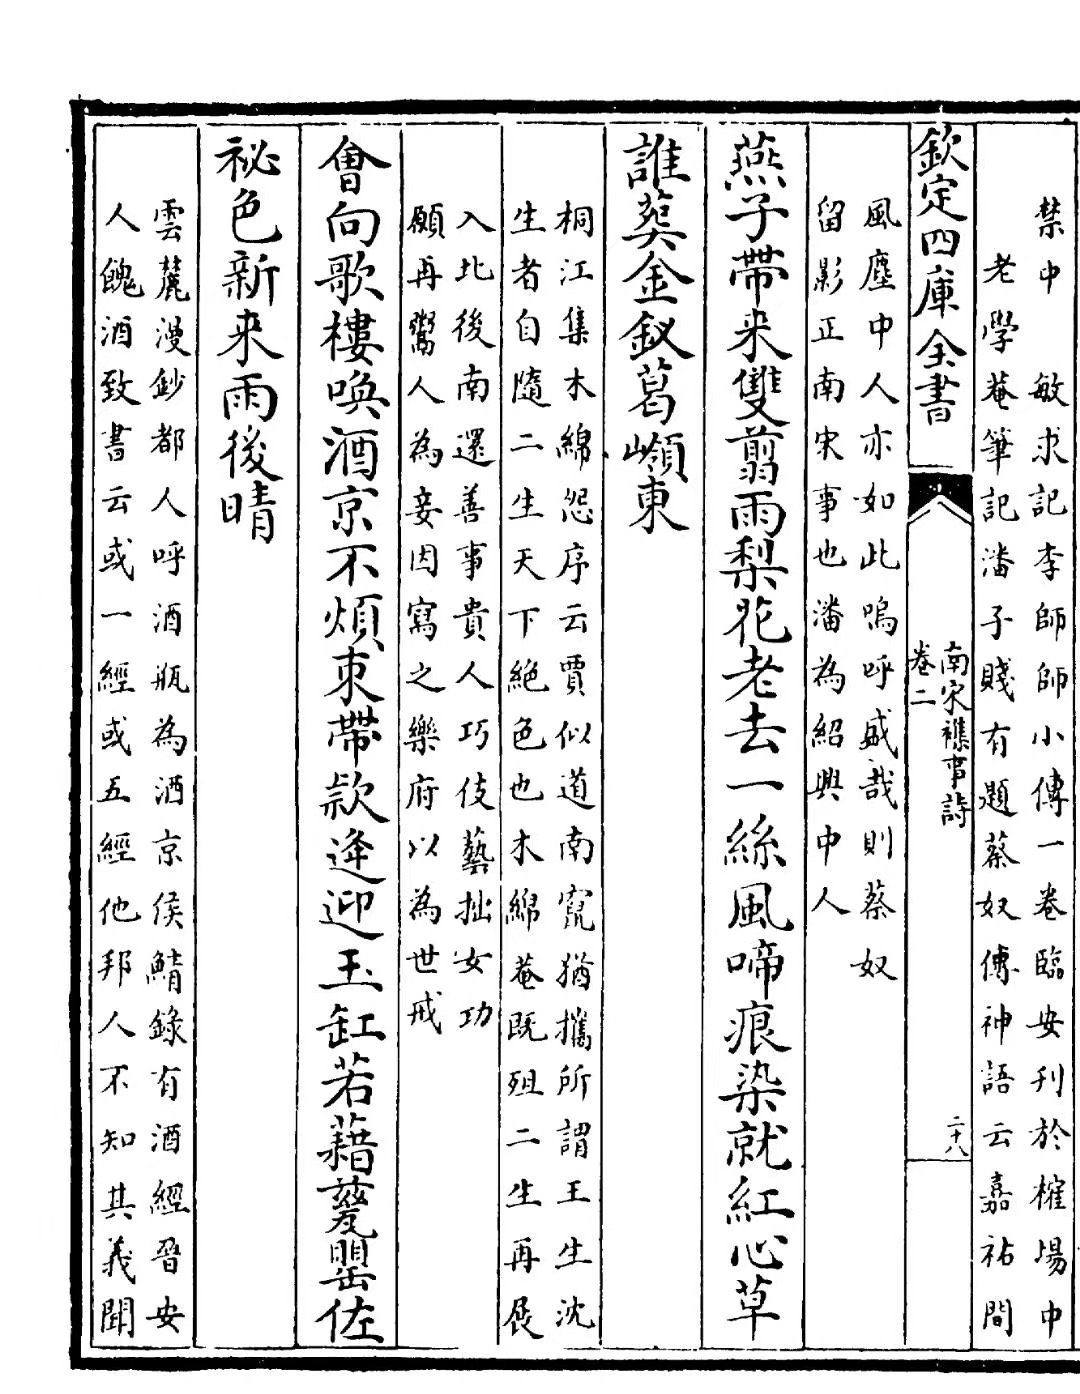 禁中　敏求記李師師小傳一卷臨安刋於榷場中
老學菴筆記潘子賤有題蔡奴傳神語云嘉祐間
欽定四庫全書
南宋襍事詩
卷二
二十八
風塵中人亦如此嗚呼盛哉則蔡奴
留影正南宋事也潘為紹興中人
燕子帶来雙翦雨梨花老去一絲風啼痕染就紅心草
誰葬金釵葛嶺東
桐江集木綿怨序云賈似道南竄猶攜所謂王生沈
生者自隨二生天下絶色也木綿菴既殂二生再展
入北後南還善事貴人巧伎藝拙女功
願再鬻人為妾因寫之樂府以為世戒
會向歌樓喚酒京不煩束帶欵逢迎玉缸若藉甆罌佐
祕色新来雨後晴
雲麓漫鈔都人呼酒瓶為酒京侯鯖錄有酒經晉安
人餽酒致書云或一經或五經他邦人不知其義聞